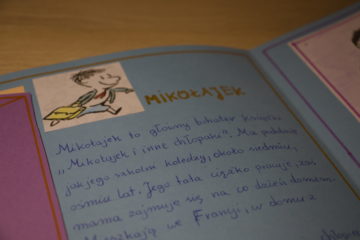 MIKOŁAJEK
Mikołajek to główny bohater książki
„Mikołajek i inne chłopaki". Ma podobnie
jak jego szkolni koledzy, około siedmiu,
ośmiu lat. Jego tata ciężko pracuje, zaś
mama zajmuje się na co dzień domem.
Mieszkają we Francji, w domu z